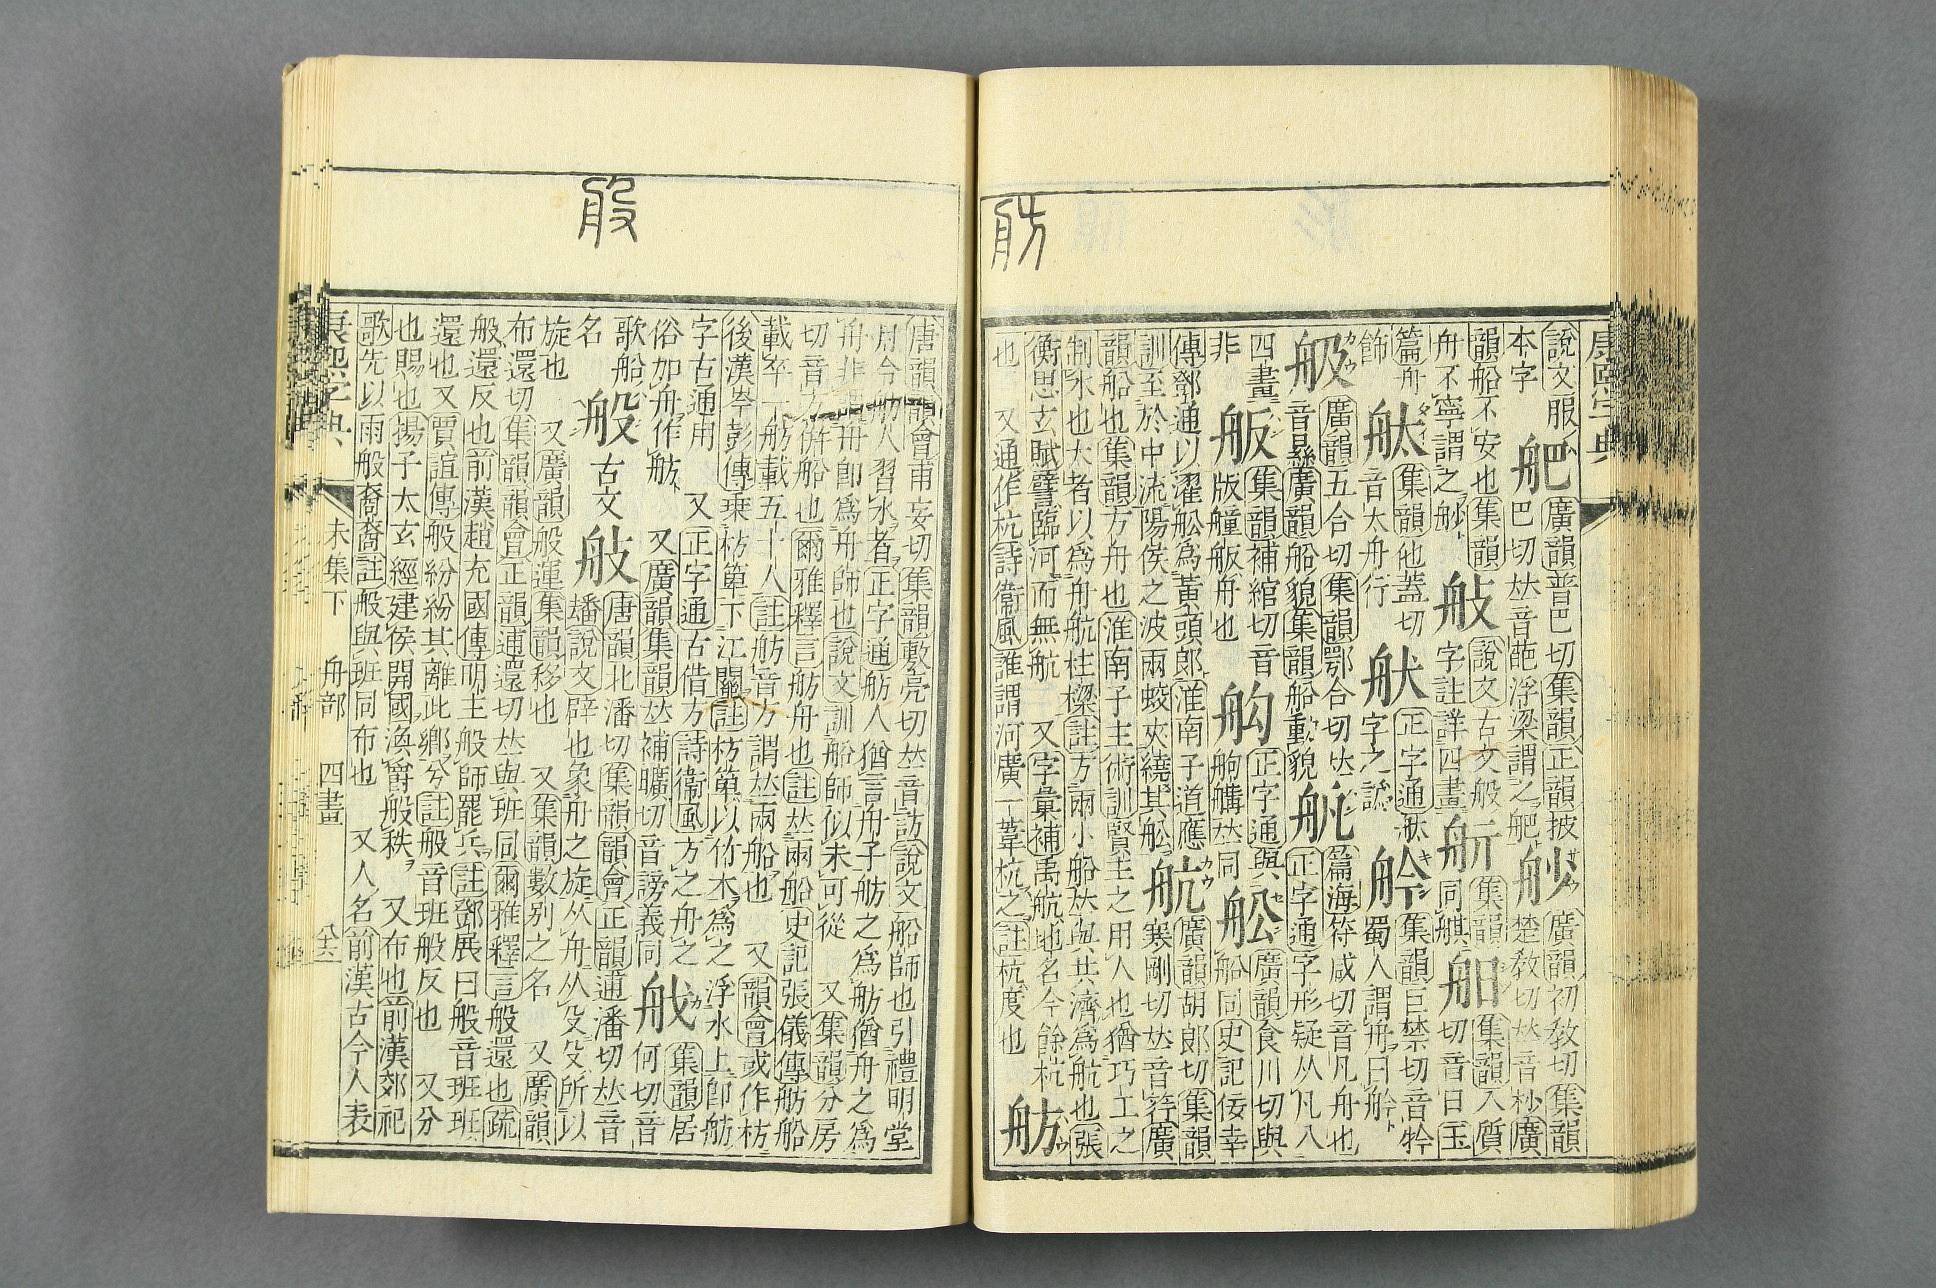 康熙字典
說文服本字
舥
廣韻普巴切集韻正韻披巴切𠀤音葩浮梁謂之舥
廣韻初敎切集韻楚敎切𠀤音杪
廣韻船不安也集韻舟不寧謂之䑠
說文古文般字註詳四畫
集韻同艩
集韻入質切音日
玉篇舟飾
集韻他蓋切音太舟行
正字通
字之譌
集韻巨禁切音矝蜀人謂舟曰舲
廣韻五合切集韻鄂合切𠀤音㬎廣韻船貌集韻船動貌
篇海符咸切音凡舟也
正字通字形疑从凡八四畫非
舨
集韻補綰切音版艟舨舟也
正字通與䑦艣𠀤同
舩
廣韻食川切與船同史記佞幸傳鄧通以濯舩爲黃頭郎淮南子道應訓至於中流陽侯之波兩蛟夾繞其舩
航
廣韻胡郎切集韻寒剛切𠀤音笐廣韻船也集韻方舟也淮南子主術訓賢主之用人也猶巧工之制木也大者以爲舟航柱樑註方兩小船𠀤與共濟爲航也張衡思玄賦譬臨河而無航
又字彙補禹航地名今餘杭也
又通作杭詩衞風誰謂河廣一葦杭之註杭度也
舫
舫
般
唐韻韻會甫妄切集韻敷亮切𠀤音訪說文船師也引禮明堂月令舫人習水者正字通舫人猶言舟子舫之爲舫猶舟之爲舟非謂舟卽爲舟師也說文訓船師似未可從
又集韻分房切音方併船也爾雅釋言舫舟也註𠀤兩船史記張儀傳舫船載卒一舫載五十人註舫音方謂𠀤兩船也
又韻會或作枋後漢岑彭傳乗枋箄下江關註枋箄以竹木爲之浮水上卽舫字古通用
又正字通古借方詩衞風方之舟之俗加舟作舫
又廣韻集韻𠀤補曠切音謗義同
集韻居何切音歌船名
般
古文
唐韻北潘切集韻韻會正韻逋潘切𠀤音蟠說文辟也象舟之旋从舟从殳殳所以旋也
又廣韻般運集韻移也
又集韻數別之名
又廣韻布還切集韻韻會正韻逋還切𠀤與班同爾雅釋言般還也疏般還反也前漢趙充國傳明主般師罷兵註鄧展曰般音班班還也
又賈誼傳般紛紛其離此鄉兮註般音班般反也
又分也賜也揚子太玄經建侯開國渙爵般秩
又布也前漢郊祀歌先以雨般裔裔註般與班同布也
又人名前漢古今人表
康熙字典
未集下
舟部
四畫